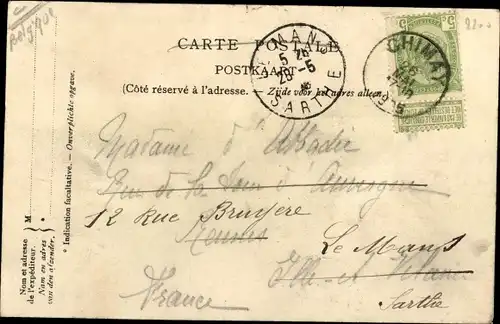 Belgique
CARTE POSTALE
POSTKAART
(Côté réservé à l'adresse. — Zijde voor het adres alleen.)
LE MANS
5 25
29 -5
SARTHE
CHIMAY
5
5
Madame d'Abbadie
Rue de la Tour d'Auvergne
12 Rue Bruyère
Rennes
Le Mans
Ille-et-Vilaine
France
Sarthe
* Indication facultative. — Onverplichte opgave.
M *
Nom et adresse
de l'expéditeur.
Naam en adres
van den afzender.